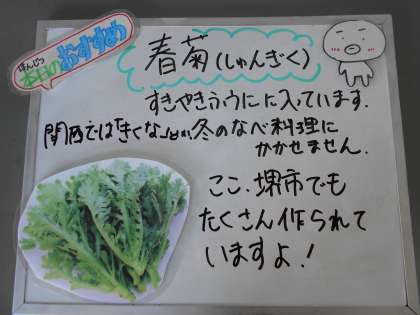 ほんじつ
本日のおすすめ
春菊(しゅんぎく)
すきやきふうにに入っています.
関西では「きくな」とか冬のなべ料理に
かかせません.
ここ、堺市でも
たくさん作られて
いますよ!